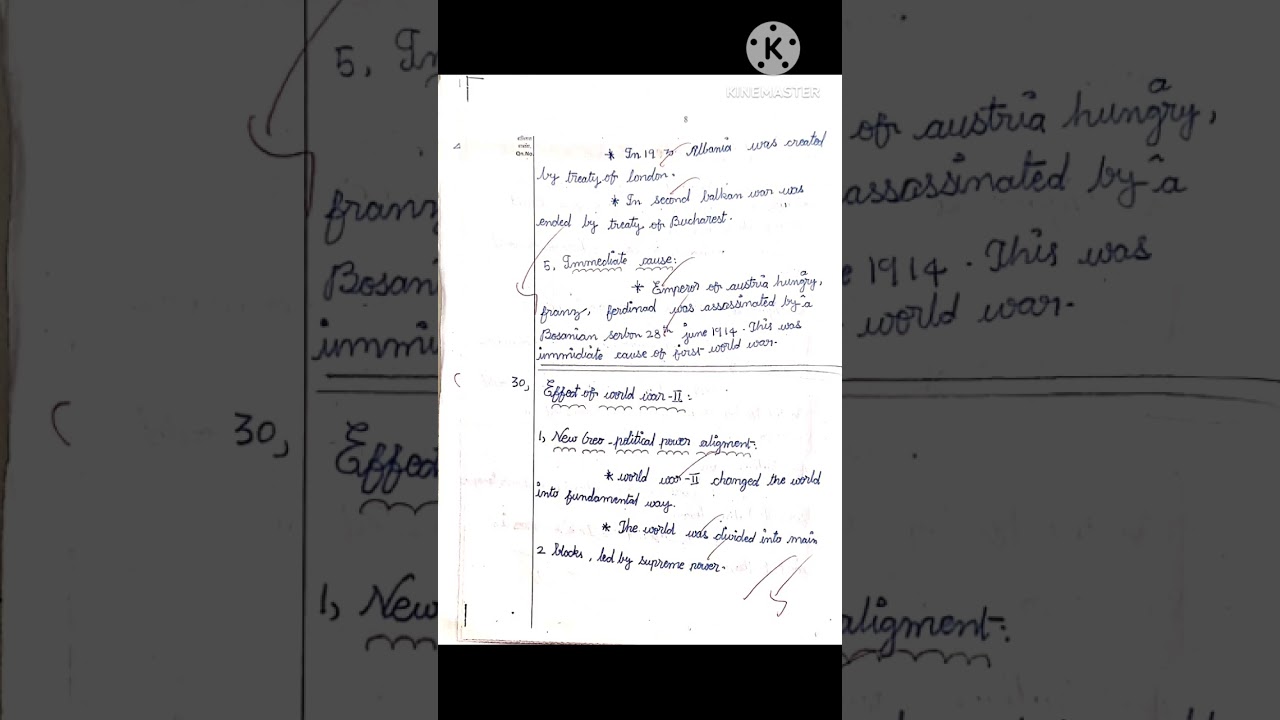 K
KINEMASTER
8
Qn.No.
* In 1913 Albania was created
by treaty of london.
* In second balkan war was
ended by treaty of Bucharest.
5, Immediate cause:
* Emperor of austria hungary,
franz, ferdinad was assassinated by a
Bosanian serb on 28th june 1914. This was
immidiate cause of first world war.
30, Effect of world war-II:
1, New Geo-political power aligment:
* world war-II changed the world
into fundamental way.
* The world was divided into main
2 blocks, led by supreme power.
5, In
of austria hungary,
franz
assassinated by a
Bosani
1914. This was
immi
world war.
30,
Effect
1, New
aligment: